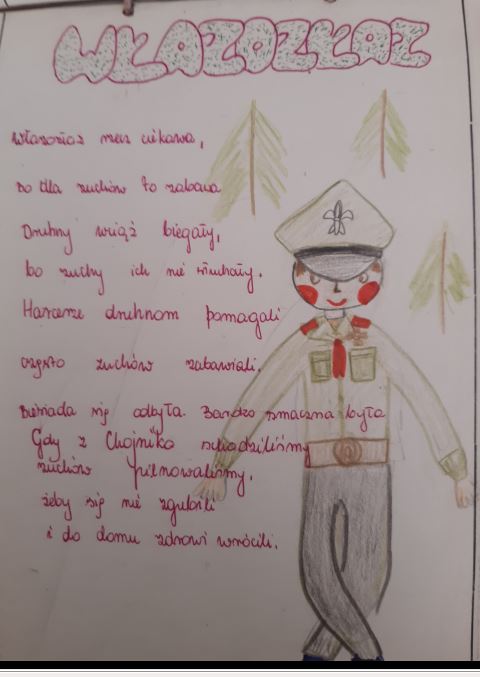 WŁAZOZŁAZ
Włazozłaz rzecz ciekawa,
bo dla zuchów to zabawa
Druhny wciąż biegały,
bo zuchy ich nie słuchały.
Harcerze druhnom pomagali
często zuchów zabawiali.
Biesiada się odbyła. Bardzo smaczna była
Gdy z Chojnika schodziliśmy
zuchów pilnowaliśmy,
żeby się nie zgubili
i do domu zdrowi wrócili.